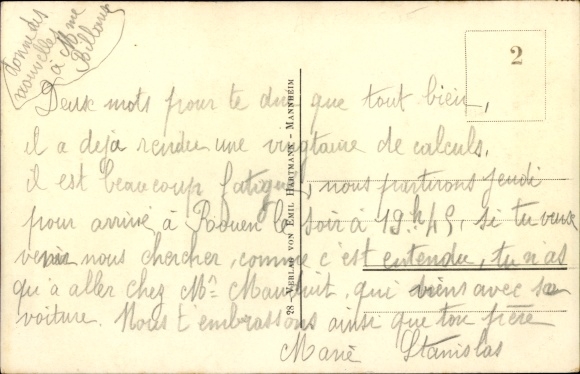 donne des
nouvelles
à Mme
Billoux
2
Deux mots pour te dire que tout bien,
il a deja rendu une vingtaine de calculs.
il est beaucoup fatigué, nous partirons jeudi
pour arrivé à Rouen le soir à 19h45, si tu veux
venir nous chercher, comme c'est entendu, tu n'as
qu'a aller chez Mr Mauduit, qui viens avec sa
voiture. Nous t'embrassons ainsi que ton frère
Marie Stanislas
28 - VERLAG VON EMIL HARTMANN - MANNHEIM